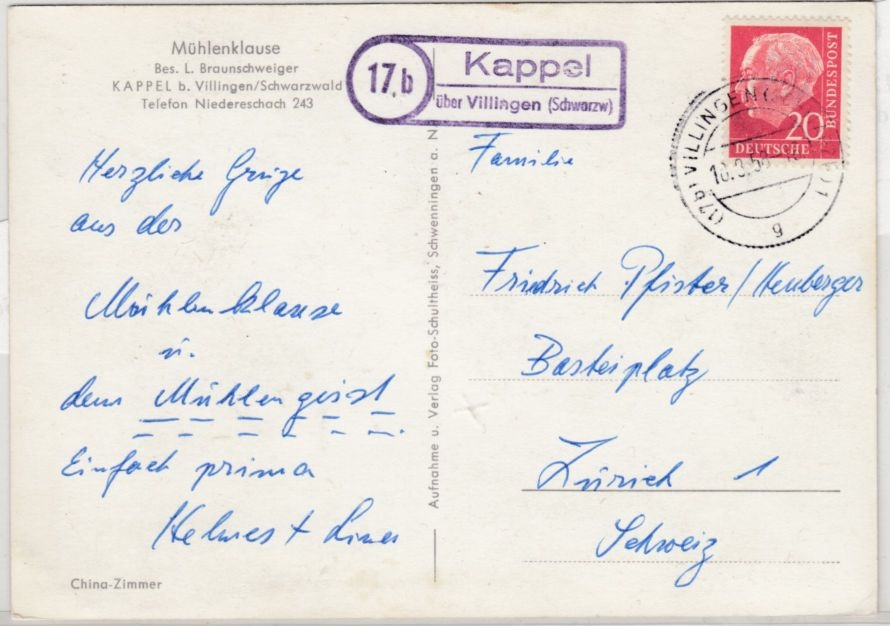 Mühlenklause
Bes. L. Braunschweiger
KAPPEL b. Villingen/Schwarzwald
Telefon Niedereschach 243
17b
Kappel
über Villingen (Schwarzw)
DEUTSCHE
BUNDESPOST
20
(17b) VILLINGEN
g
Herzliche Grüße
aus der
Mühlenklause
u.
dem Mühlengeist
Einfach prima
Aufnahme u. Verlag Foto-Schultheiss, Schwenningen a. N
Familie
Friedrich Pfister/Heuberger
Basteiplatz
Zürich 1
Schweiz
China-Zimmer